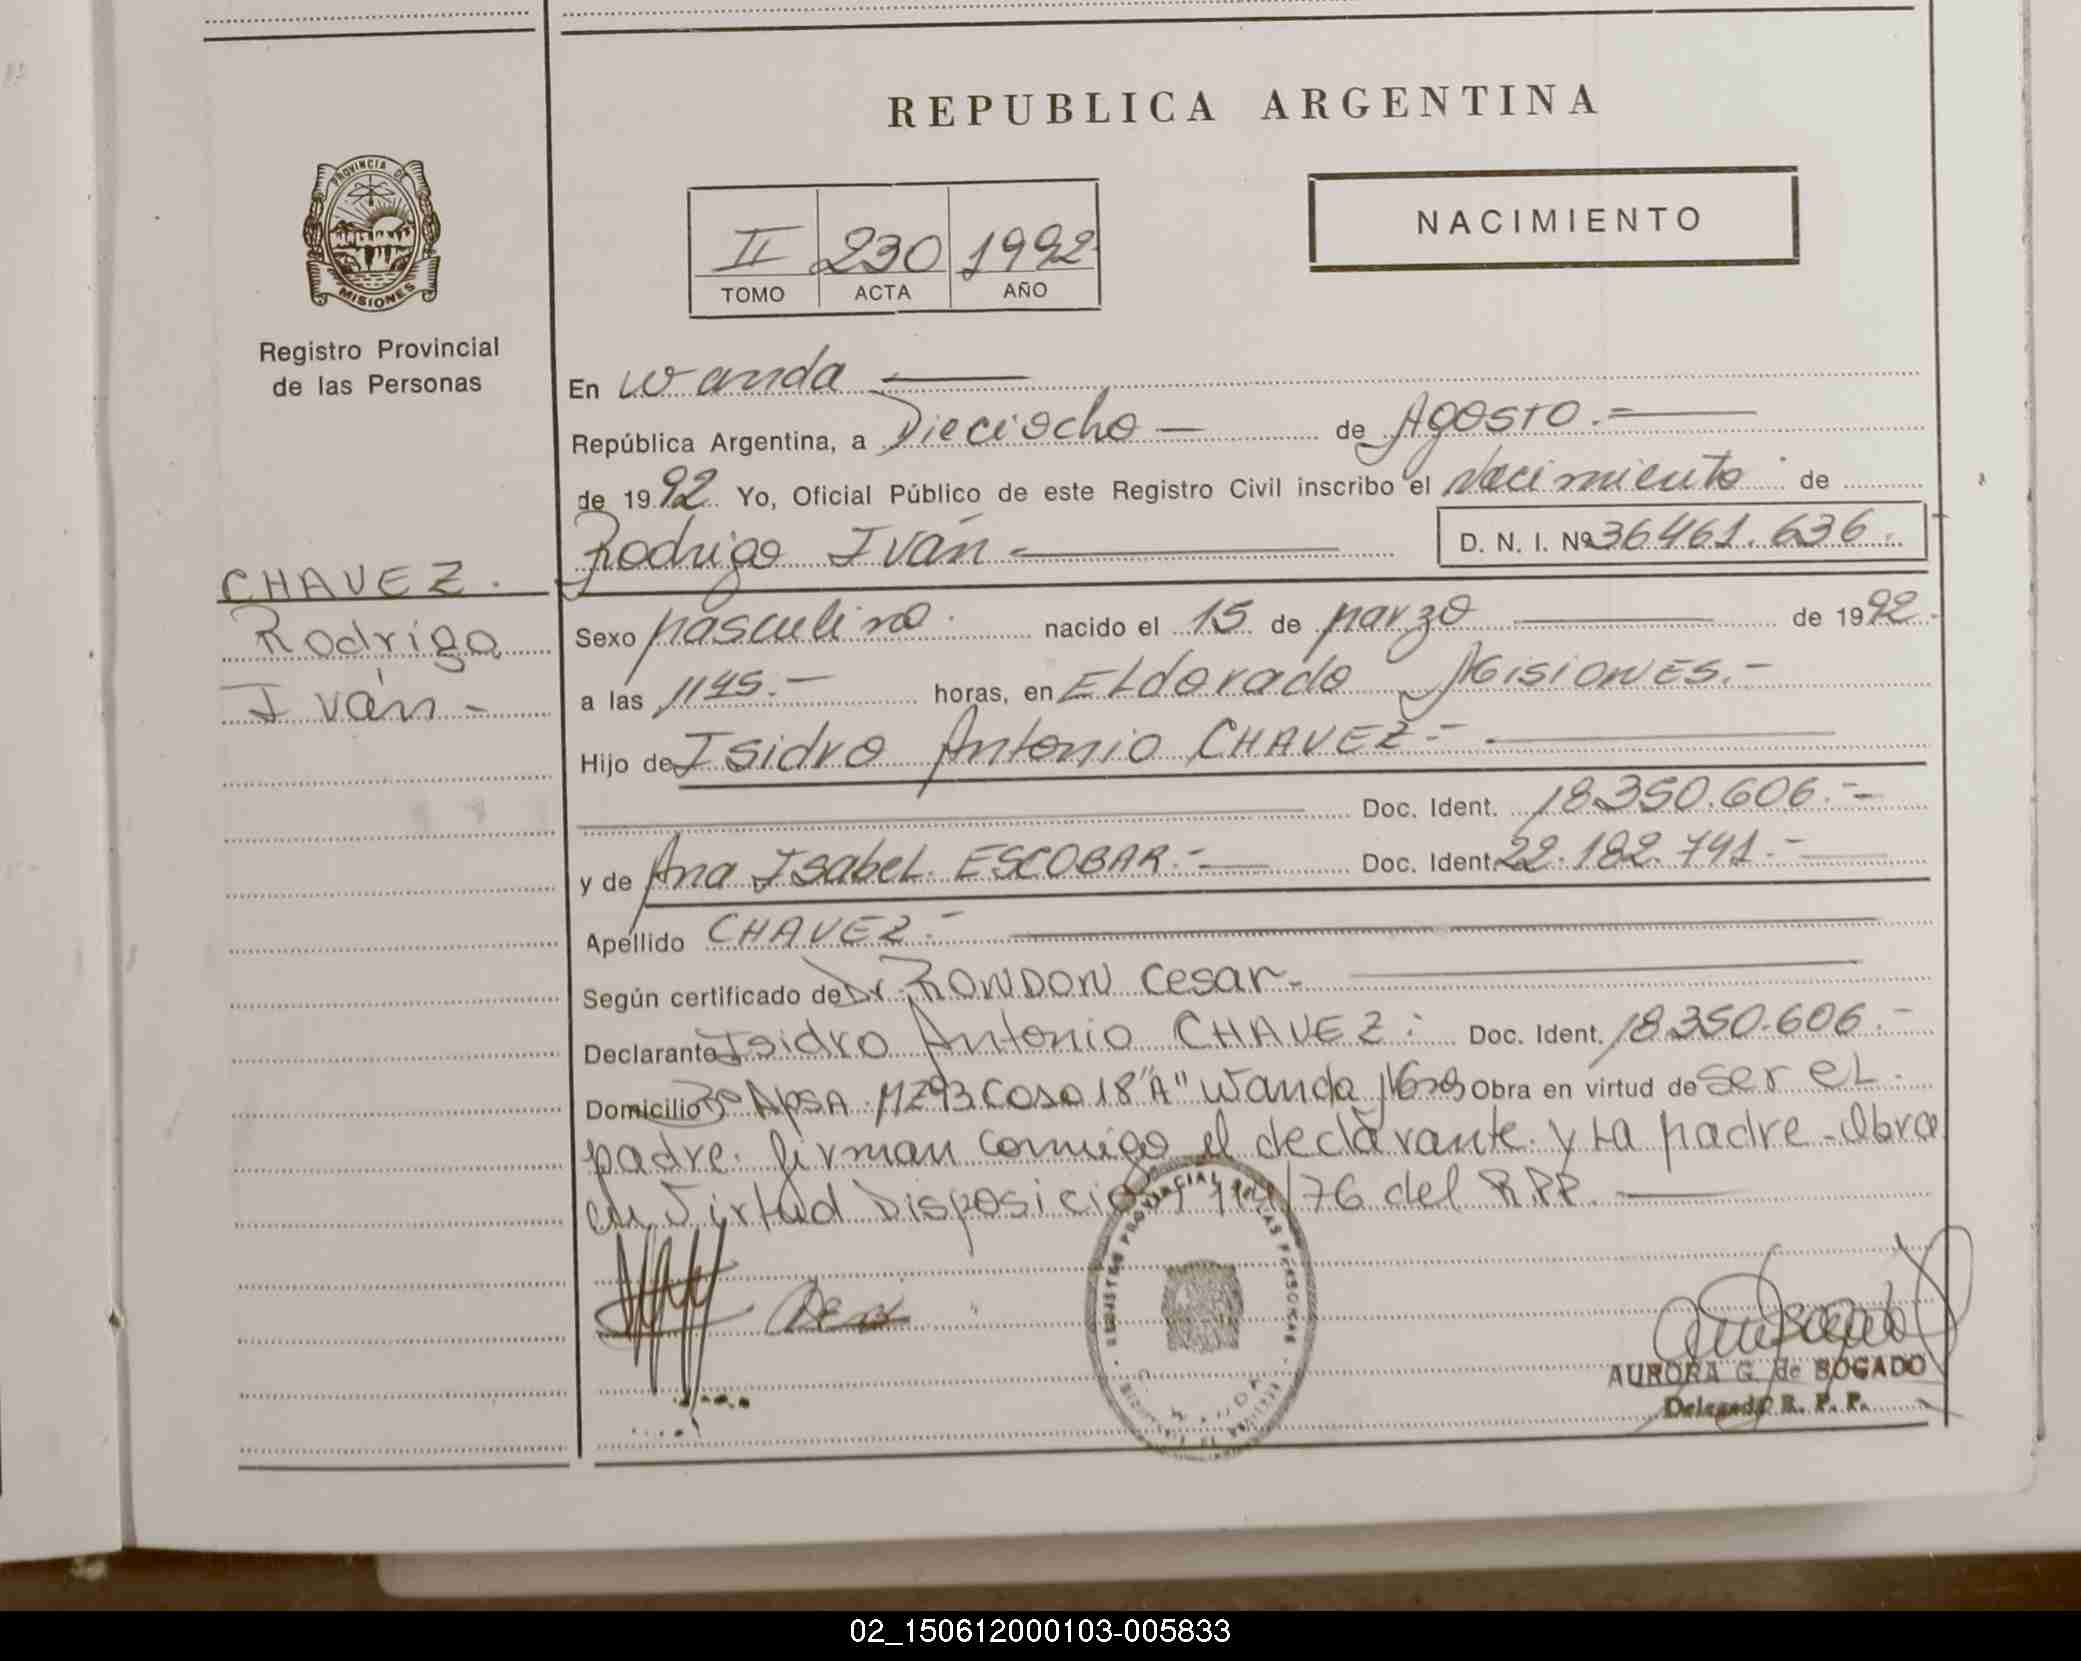 REPUBLICA ARGENTINA
NACIMIENTO
II 230 1992
TOMO ACTA AÑO
PROVINCIA DE
MISIONES
Registro Provincial
de las Personas
CHAVEZ.
Rodrigo
Iván -
En Wanda
República Argentina, a Dieciocho — de Agosto.-
de 1992. Yo, Oficial Público de este Registro Civil inscribo el Nacimiento de
Rodrigo Iván - D. N. I. Nº 36461.636.
Sexo Masculino. nacido el 15 de Marzo de 1992.-
a las 1145.- horas, en ELdorado Misiones.-
Hijo de Isidro Antonio CHAVEZ.-
Doc. Ident. 18.350.606.-
y de Ana Isabel ESCOBAR.- Doc. Ident. 22.182.741.-
Apellido CHAVEZ.-
Según certificado de Dr. RONDON Cesar.-
Declarante Isidro Antonio CHAVEZ: Doc. Ident. 18.350.606.-
Domicilio Bº Apsa MZ93 Casa 18 "A" Wanda Obra en virtud de ser eL
padre. firman conmigo el declarante y La Madre - Obra
en Virtud Disposición /76 del R.P.P.
REGISTRO PROVINCIAL DE LAS PERSONAS
AURORA G. de BOGADO
Delegada R. P. P.
02_150612000103-005833